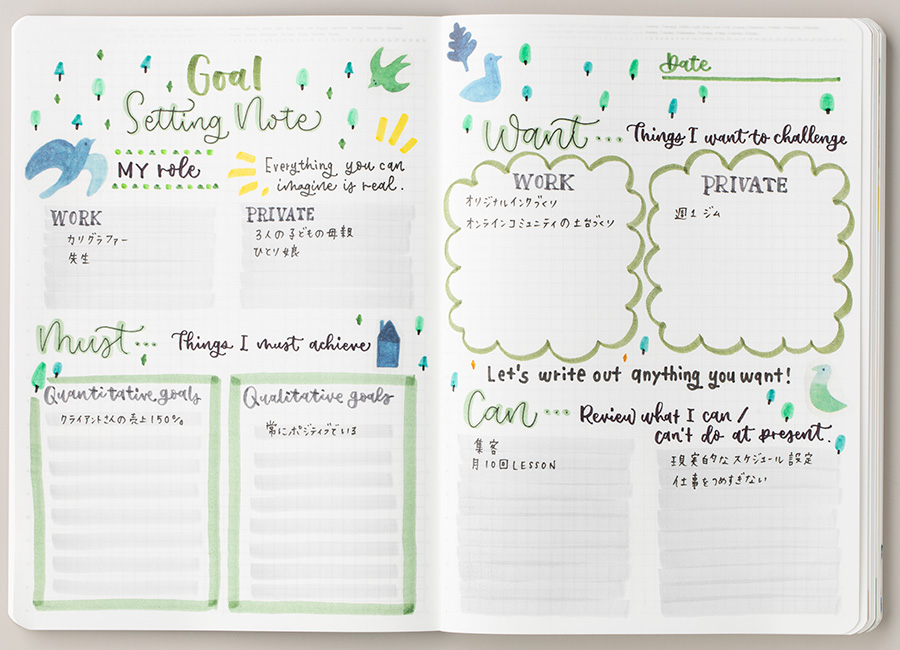 Goal
Setting Note
MY role
Everything you can
imagine is real.
WORK
カリグラファー
先生
PRIVATE
3人の子どもの母親
ひとり娘
Must...
Things I must achieve
Quantitative goals
クライアントさんの売上150%
Qualitative goals
常にポジティブでいる
Date
Want...
Things I want to challenge
WORK
オリジナルインクづくり
オンラインコミュニティの土台づくり
PRIVATE
週1ジム
Let's write out anything you want!
Can...
Review what I can/
can't do at present.
集客
月10回LESSON
現実的なスケジュール設定
仕事をつめすぎない